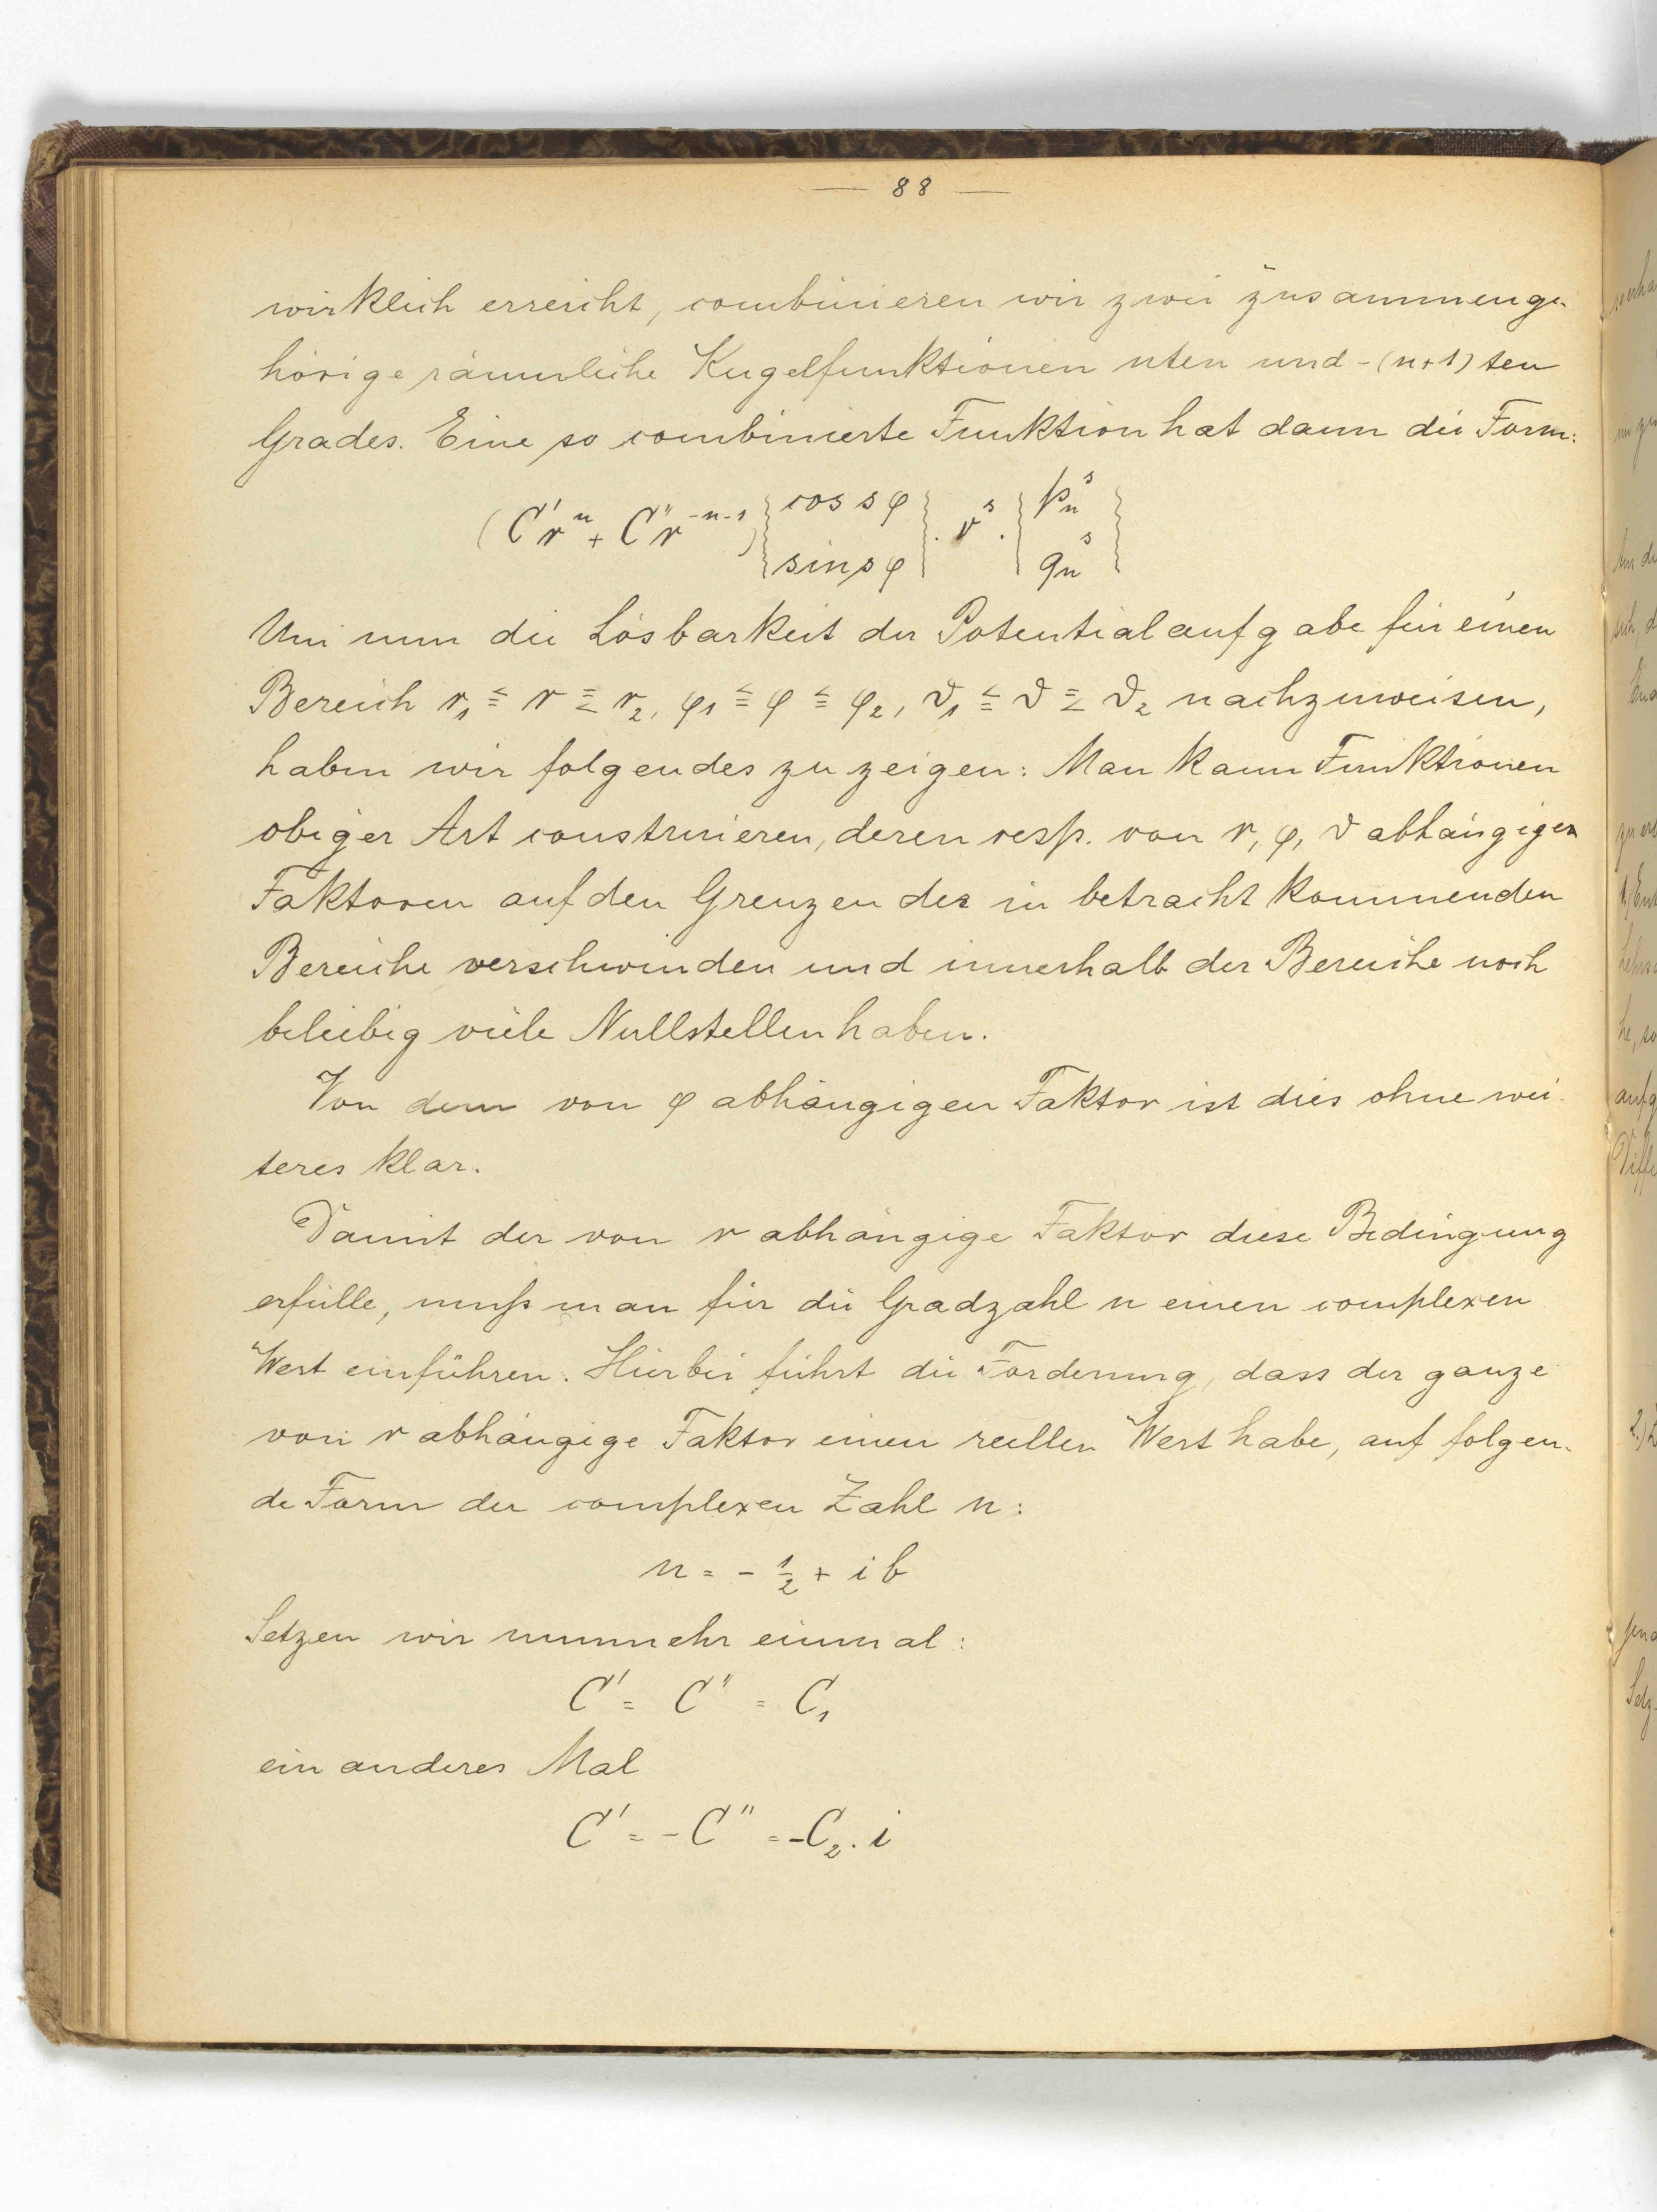 — 88 —
wirklich erreicht, combinieren wir zwei zusammenge-
hörige räumliche Kugelfunktionen nten und -(n+1)ten
Grades. Eine so combinierte Funktion hat dann die Form:
(C'rⁿ + C''r⁻ⁿ⁻¹) { cos sφ
sin sφ } · νˢ · { pₙˢ
qₙˢ }
Um nun die Lösbarkeit der Potentialaufgabe für einen
Bereich r₁ ≦ r ≦ r₂, φ₁ ≦ φ ≦ φ₂, ϑ₁ ≦ ϑ ≦ ϑ₂ nachzuweisen,
haben wir folgendes zu zeigen: Man kann Funktionen
obiger Art construieren, deren resp. von r, φ, ϑ abhängigen
Faktoren auf den Grenzen der in betracht kommenden
Bereiche verschwinden und innerhalb der Bereiche noch
beliebig viele Nullstellen haben.
Von dem von φ abhängigen Faktor ist dies ohne wei-
teres klar.
Damit der von r abhängige Faktor diese Bedingung
erfülle, muß man für die Gradzahl n einen complexen
Wert einführen. Hierbei führt die Forderung, dass der ganze
von r abhängige Faktor einen reellen Wert habe, auf folgen-
de Form der complexen Zahl n:
n = - ½ + ib
Setzen wir nunmehr einmal:
C' = C'' = C₁
ein anderes Mal
C' = -C'' = -C₂ · i